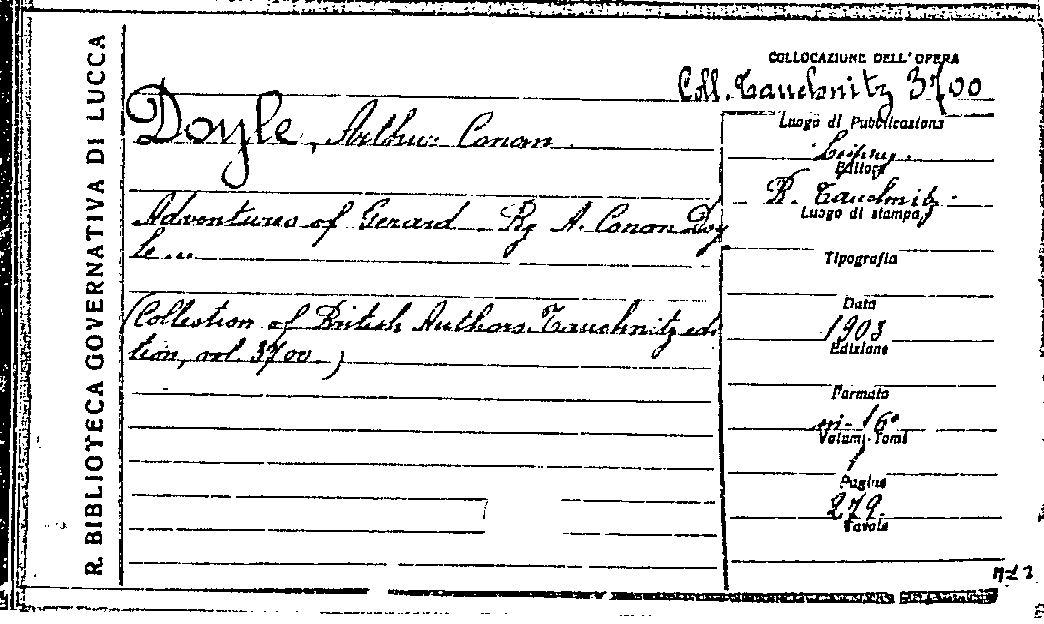 R. BIBLIOTECA GOVERNATIVA DI LUCCA
COLLOCAZIONE DELL'OPERA
Coll. Tauchnitz 3700
Doyle, Arthur Conan
Adventures of Gerard - By A. Conan Doy
le...
(Collection of British Authors. Tauchnitz edi
tion, vol. 3700.)
Luogo di Pubblicazione
Editore
B. Tauchnitz
Luogo di stampa
Tipografia
Data
1903
Edizione
Formato
in-16°
Volumi-Tomi
1
Pagine
279.
Tavole